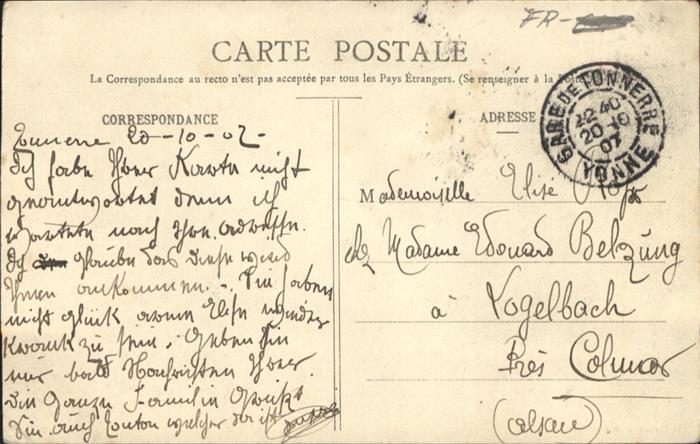 FR-
CARTE POSTALE
La Correspondance au recto n'est pas acceptée par tous les Pays Étrangers. (Se renseigner à la Poste)
CORRESPONDANCE
ADRESSE
GARE DE TONNERRE
22 40
20 10
07
YONNE
Tonnerre 20-10-07-
Ich habe Ihrer Karte nicht
geantwortet denn ich
wartete nach Ihre Adresse.
Ich glaube das diese wird
Ihnen ankommen. - Sie haben
nicht glück arme Elise wieder
krank zu sein. Geben Sie
mir bald Nachrichten Ihrer.
Die Ganze Familie Grüßt
Sie auch
Mademoiselle Elise
chez Madame Edouard Belzung
à Vogelbach
Près Colmar
(Alsace)